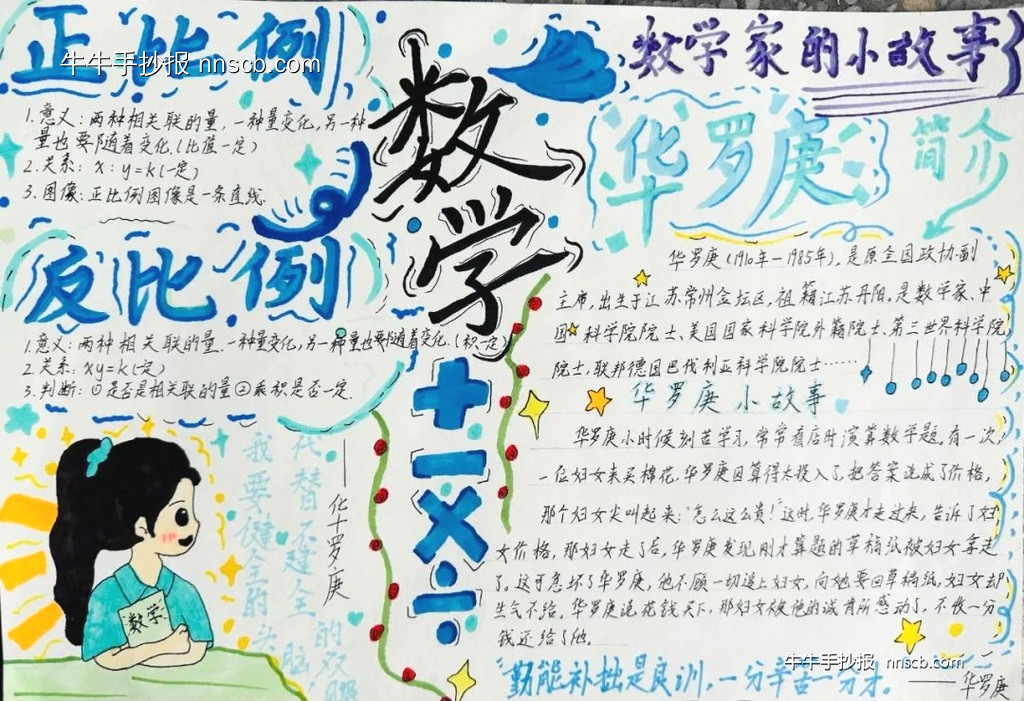 正比例
牛牛手抄报 nnscb.com
1.意义:两种相关联的量,一种量变化,另一种
量也要随着变化.(比值一定)
2.关系:x:y=k(一定)
3.图像:正比例图像是一条直线.
反比例
1.意义:两种相关联的量.一种量变化,另一种量也要随着变化.(积一定)
2.关系:xy=k(一定)
3.判断:①是否是相关联的量②乘积是否一定.
我要健全的头脑,
代替不健全的双腿
——华罗庚
数学
数学
+
-
×
÷
数学家的小故事
华罗庚
简介
华罗庚(1910年-1985年),是原全国政协副
主席.出生于江苏常州金坛区,祖籍江苏丹阳.是数学家、中
国科学院院士、美国国家科学院外籍院士、第三世界科学院
院士,联邦德国巴伐利亚科学院院士……
华罗庚小故事
华罗庚小时候刻苦学习,常常看店时演算数学题.有一次,
一位妇女来买棉花,华罗庚因算得太投入了,把答案说成了价格,
那个妇女尖叫起来:"怎么这么贵!"这时,华罗庚才走过来,告诉了妇
女价格,那妇女走了后,华罗庚发现刚才算题的草稿纸被妇女拿走
了。这可急坏了华罗庚,他不顾一切追上妇女,向她要回草稿纸,妇女却
生气不给.华罗庚说花钱买下,那妇女被他的诚肯所感动了,不收一分
钱还给了他.
勤能补拙是良训,一分辛苦一分才.
——华罗庚
牛牛手抄报 nnscb.com